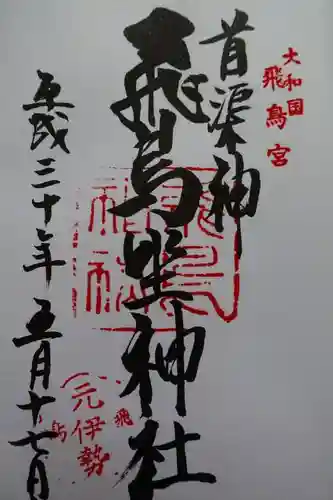 大和国
飛鳥宮
首渠神
飛鳥坐神社
平成三十年五月十七日
（元伊勢
飛
鳥